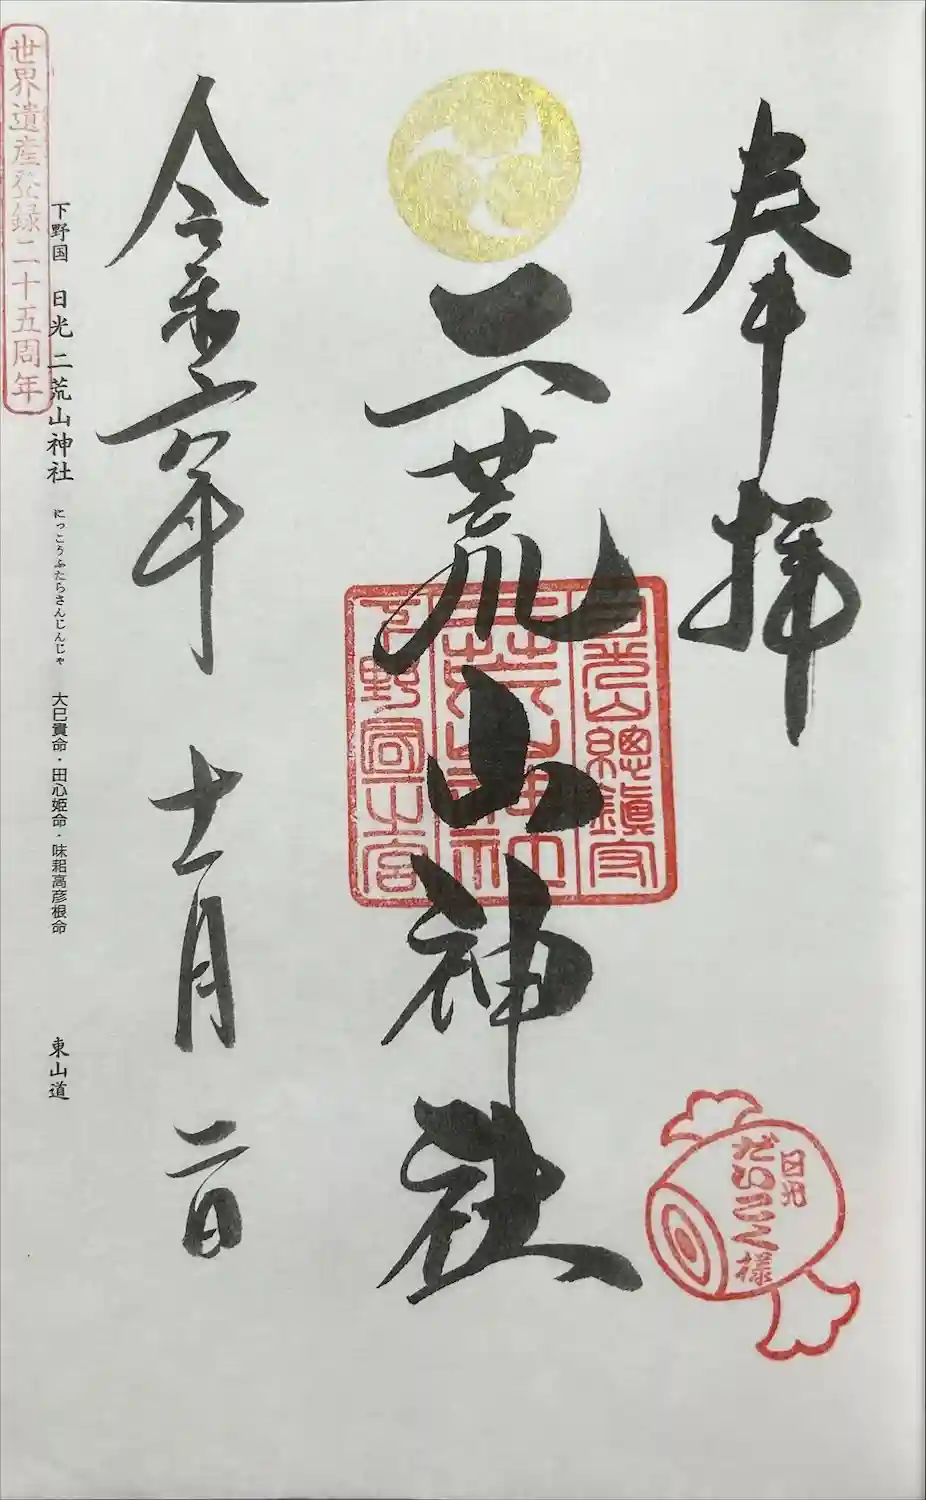 奉拝
二荒山神社
日光山總鎮守
二荒山神社
下野國一宮
日光
だいこく様
令和六年 十一月 二日
下野国 日光二荒山神社 にっこうふたらさんじんじゃ 大巳貴命・田心姫命・味耜高彦根命 東山道
世界遺産登録二十五周年